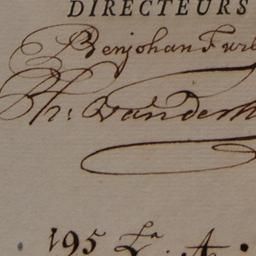 DIRECTEURS
Benjohan Furl
Th: Vanderh
195 La: A.